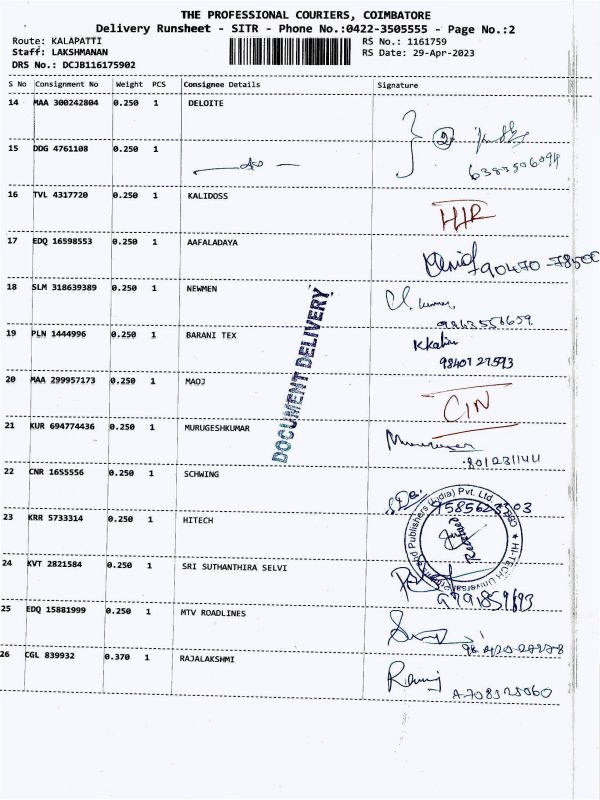 THE PROFESSIONAL COURIERS, COIMBATORE
Delivery Runsheet - SITR - Phone No.:0422-3505555 - Page No.:2
Route: KALAPATTI
RS No.: 1161759
Staff: LAKSHMANAN
RS Date: 29-Apr-2023
DRS No.: DCJB116175902
S No Consignment No Weight PCS Consignee Details Signature
14 MAA 300242804 0.250 1 DELOITE
15 DDG 4761108 0.250 1
16 TVL 4317720 0.250 1 KALIDOSS
17 EDQ 16598553 0.250 1 AAFALADAYA
90470-78500
18 SLM 318639389 0.250 1 NEWMEN
19 PLN 1444996 0.250 1 BARANI TEX
20 MAA 299957173 0.250 1 MAOJ
CIN
DOCUMENT DELIVERY
21 KUR 694774436 0.250 1 MURUGESHKUMAR
22 CNR 1655556 0.250 1 SCHWING
23 KRR 5733314 0.250 1 HITECH
Received
24 KVT 2821584 0.250 1 SRI SUTHANTHIRA SELVI
25 EDQ 15881999 0.250 1 MTV ROADLINES
26 CGL 839932 0.370 1 RAJALAKSHMI